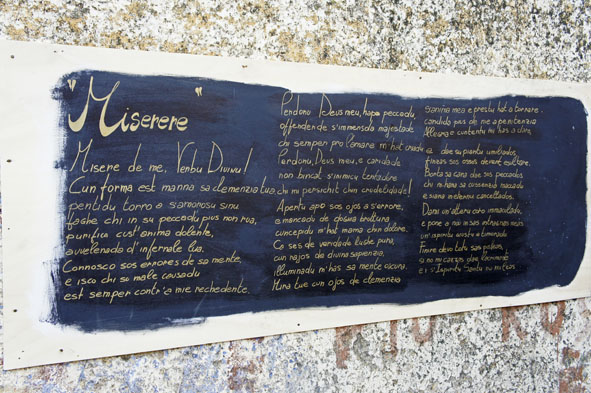 "Miserere"
Misere de me, Verbu Divinu!
Cun forma est manna sa clemenzia tua
pentidu torro a s'amorosu sinu
faghe chi in su peccadu pius non rua,
purifica cust'anima dolente,
avvelenada d'infernale lua.
Connosco sos errores de sa mente,
e isco chi su male causadu
est semper contr'a mie rechedente.
Perdonu Deus meu, hapo peccadu,
offenden de s'immensa majestade
chi semper pro l'amare m'hat creadu
Perdonu, Deus meu, e caridade
non bincat s'inimicu tentadore
chi mi persighit chin crudelidade!
Apertu apo sos ojos a s'errore,
a mancadu de dogna bruttura
cuncepidu m'hat mama chin dolore.
Ca ses de veridade lughe pura,
cun rajos de divina sapienzia,
illuminadu m'has sa mente oscura.
Mira tue cun ojos de clemenzia
s'anima mea e prestu hat a torrare
candida pas de me a penitenzia
Allegru e cuntentu m'has a dare,
e dae su piantu umiliados
finzas sos ossos deven esultare.
Borta sa cara dae sos peccados
chi m'hana sa cussenzia macciadu
e siana in eternu cancellados.
Dami un'ateru coro immaculadu,
e pone a nou in sas intragnas meas
un'ispiritu
Firmu
a no mi
e i s'Ispiritu Santu